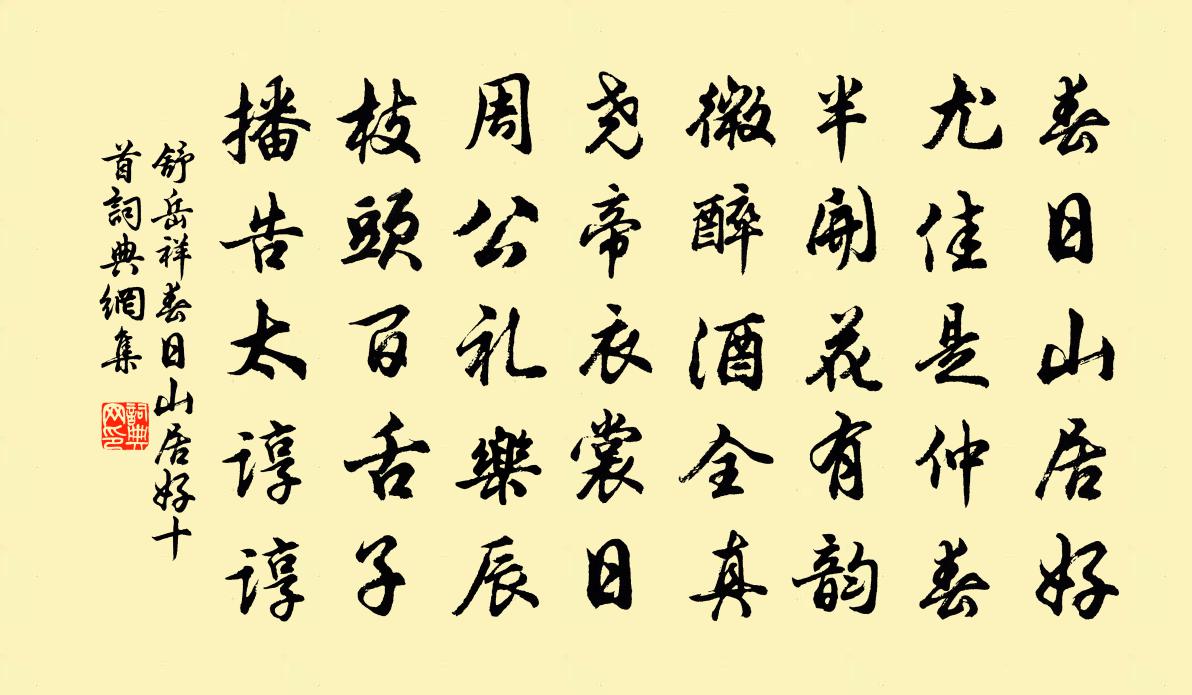 春日山居好
尤佳是仲春
半開花有韵
微醉酒全真
尧帝衣裳日
周公礼樂辰
枝頭百舌子
播告太谆谆
舒岳祥春日山居好十
首詞典網集
詞典网印